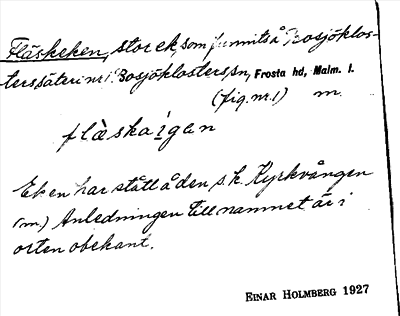 Fläskeken, stor ek, som funnits å Bosjöklos-
ters säteri nr 1. Bosjöklosters sn, Frosta hd, Malm. l.
(fig. nr. 1) m.
flàskaígan
Eken har stått å den s. k. Kyrkvången
(m.) Anledningen till namnet är i
orten obekant.
EINAR HOLMBERG 1927